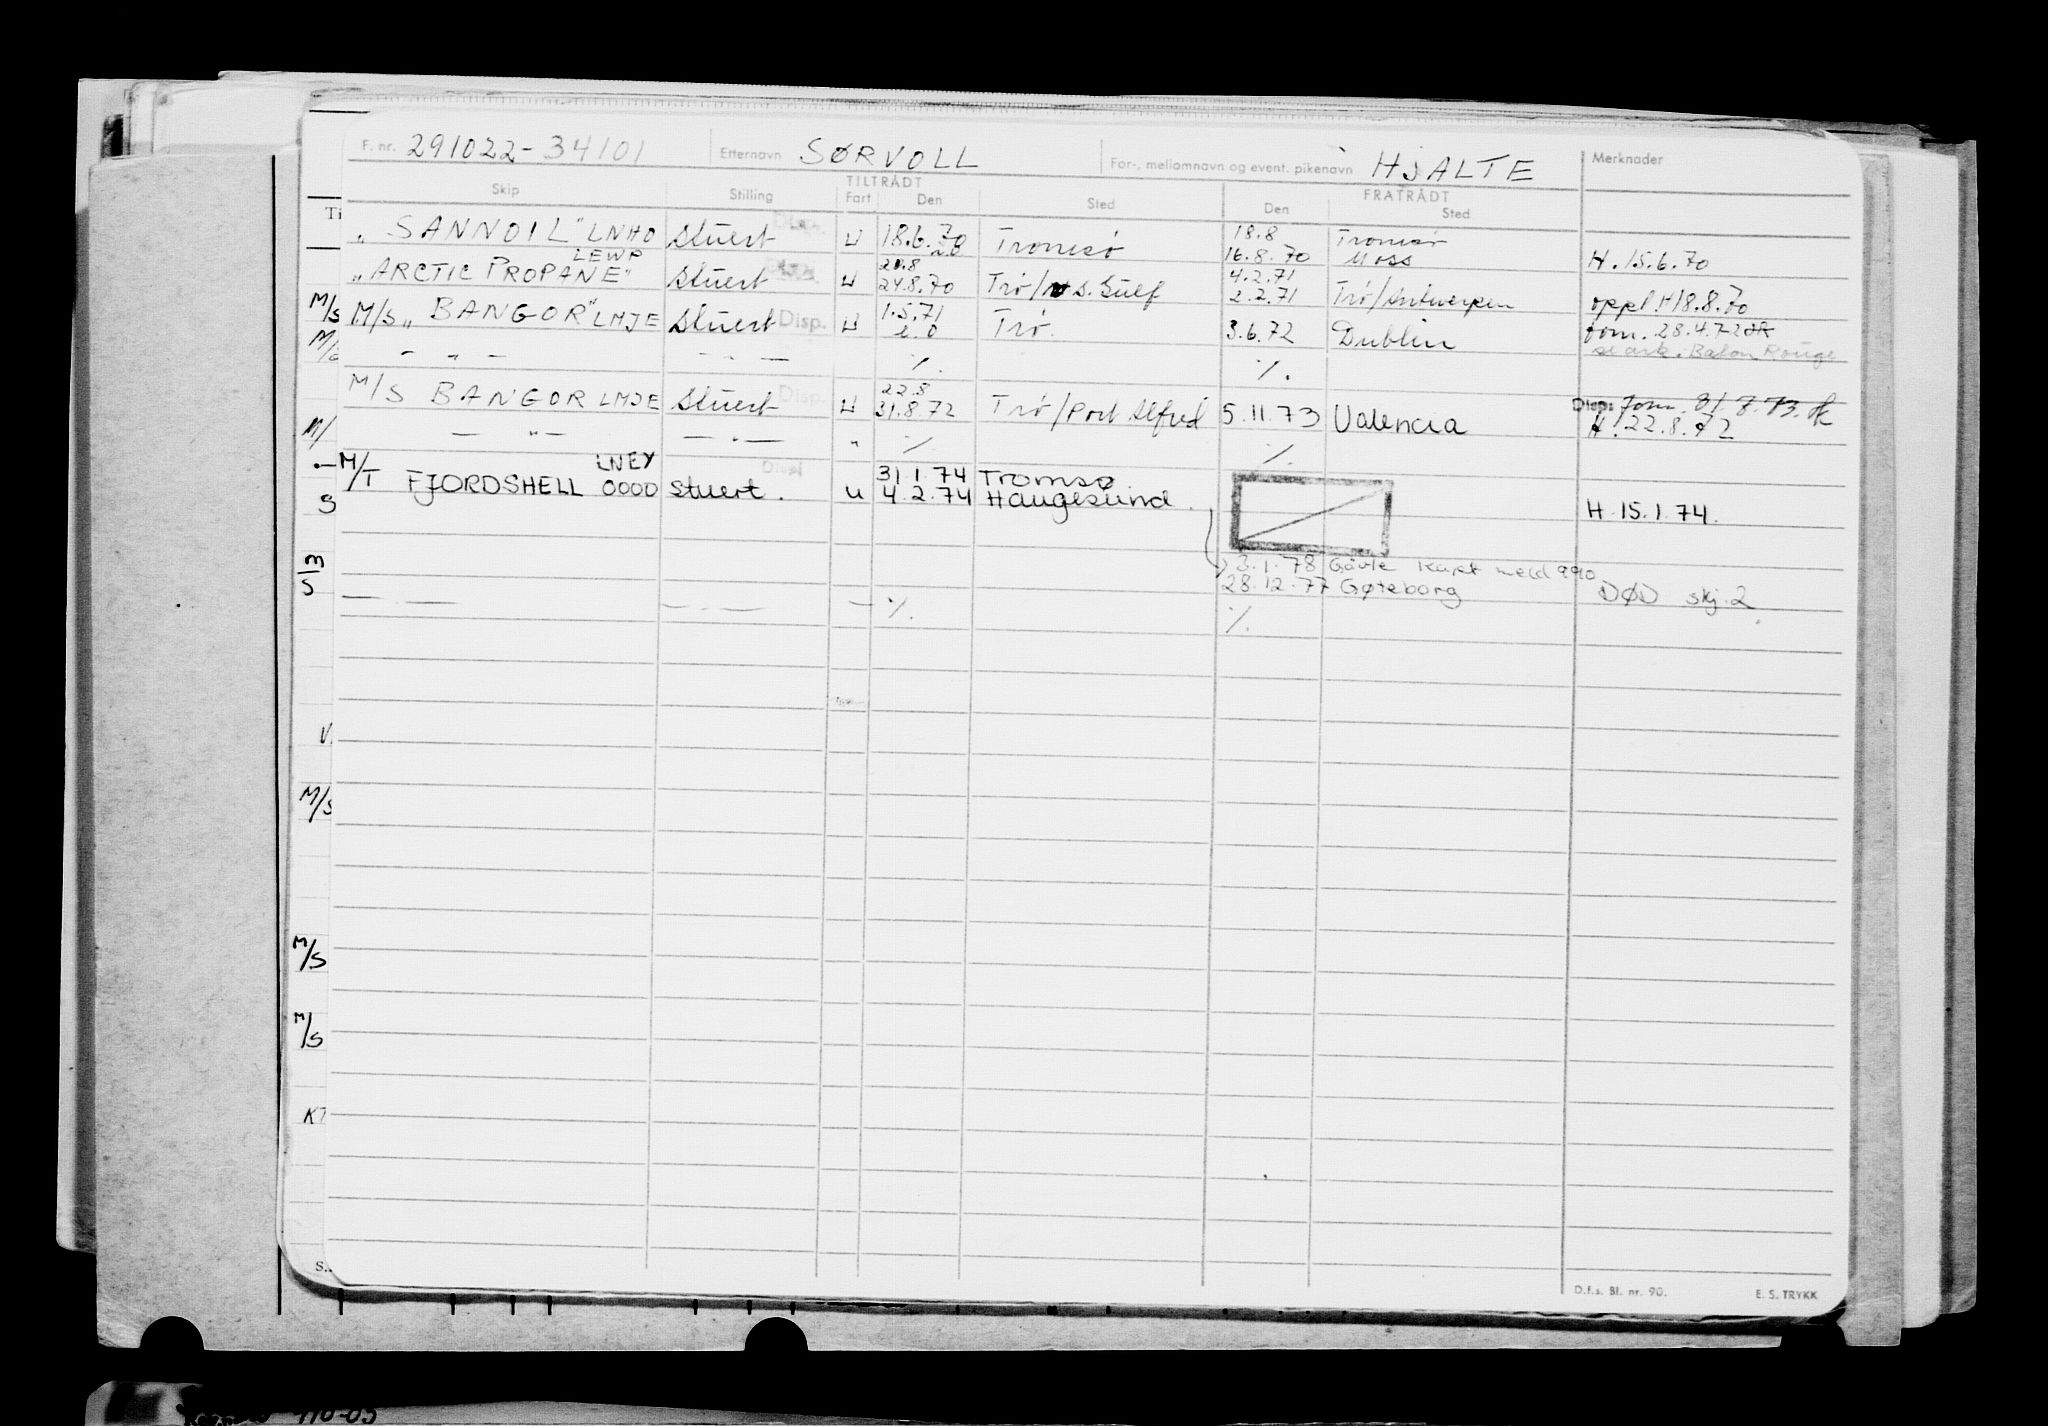 F. nr. 291022-34101 Etternavn SØRVOLL For-, mellomnavn og event. pikenavn HJALTE Merknader
Skip Stilling TILTRÅDT Fart Den Sted FRATRÅDT Den Sted
18.8 Tromsø
„SANNOIL" LNHO Stuert Disp. U 18.6.70 Tromsø 16.8.70 Moss H. 15.6.70
LEWP 21.8 4.2.71
„ARCTIC PROPANE" Stuert U 24.8.70 Trø/ S. Gulf 2.2.71 Trø/Antwerpen oppl. H 18.8.70
M/S M/S „BANGOR" LMJE Stuert Disp. U 1.5.71 Trø. 3.6.72 Dublin fom. 28.4.72
Baton Rouge
- " - - " - ٪. ٪.
22.8
M/S BANGOR LMJE Stuert Disp. U 31.8.72 Trø/Port Alfred 5.11.73 Valencia Disp: fom. 31.7.73.
H. 22.8.72
M/ - " - - " - " ٪. ٪.
LNEY 31.1.74 Tromsø
M/T FJORDSHELL 0000 Stuert. u 4.2.74 Haugesund. H. 15.1.74.
S
3.1.78 Gävle Kapt meld 990
M/S 28.12.77 Gøteborg DØD skj. 2
٪. ٪.
V.
M/S
M/S
M/S
K
S.
D.f.s. Bl. nr. 90. E. S. TRYKK